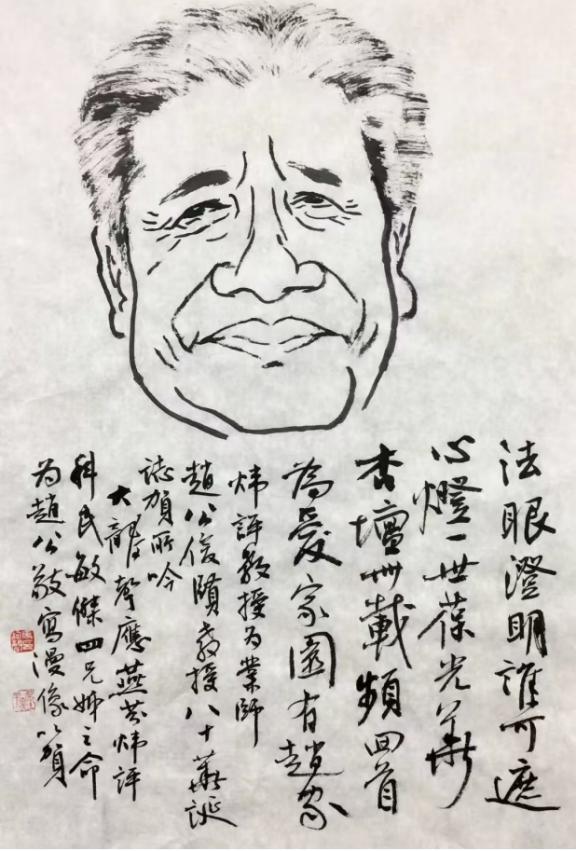 法眼澄明誰可遮
心燈一世葆光華
杏壇卅載頻回首
為愛家園有趙家
煒評教授为業師
趙公俊賢教授八十華誕
誌賀所吟
大龍應燕芸煒評
科民敏傑四兄姊之命
为趙公敬寫漫像以頌